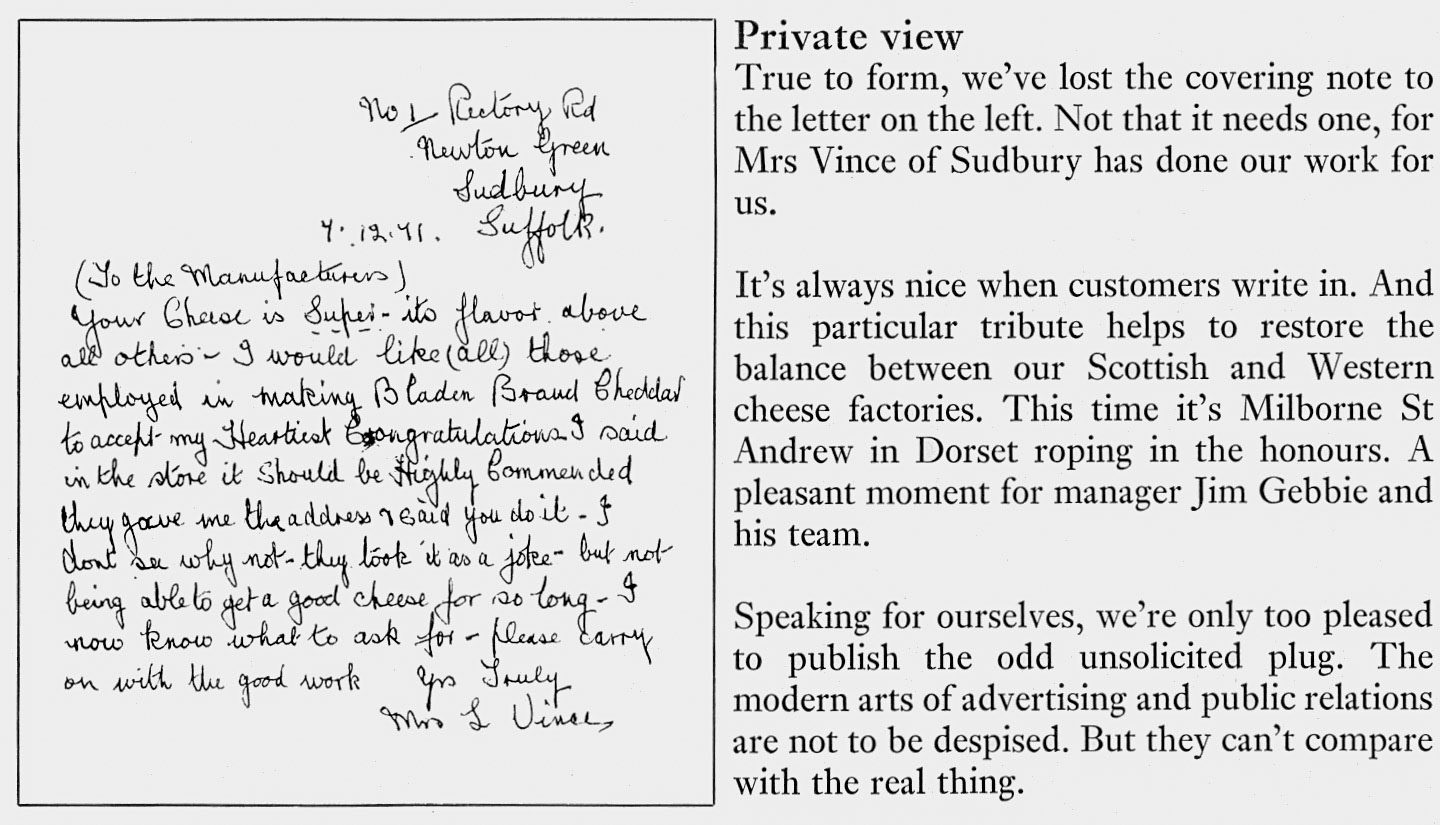 No 1 Rectory Rd
Newton Green
Sudbury
7.12.71. Suffolk.
(To the Manufacturers)
Your Cheese is Super - its flavor above
all others - I would like (all) those
employed in making Bladen Brand Cheddar
to accept my Heartiest Congratulations I said
in the store it Should be Highly Commended
they gave me the address & said you do it - I
dont see why not - they took it as a joke - but not
being able to get a good cheese for so long - I
now know what to ask for - please carry
on with the good work Yrs Truly
Mrs L Vince
Private view
True to form, we've lost the covering note to
the letter on the left. Not that it needs one, for
Mrs Vince of Sudbury has done our work for
us.
It's always nice when customers write in. And
this particular tribute helps to restore the
balance between our Scottish and Western
cheese factories. This time it's Milborne St
Andrew in Dorset roping in the honours. A
pleasant moment for manager Jim Gebbie and
his team.
Speaking for ourselves, we're only too pleased
to publish the odd unsolicited plug. The
modern arts of advertising and public relations
are not to be despised. But they can't compare
with the real thing.